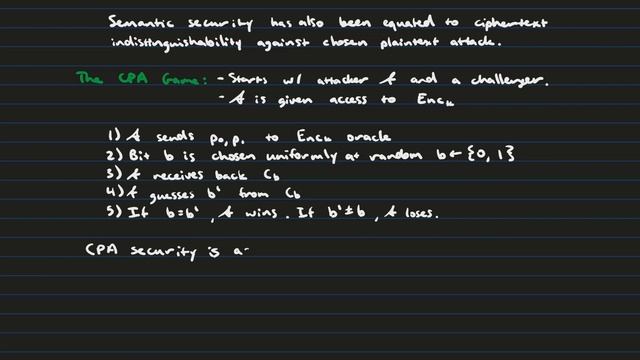 Semantic security has also been equated to ciphertext
indistinguishability against chosen plaintext attack.
The CPA Game: - Starts w/ attacker A and a challenger.
- A is given access to Enck
1) A sends p0, p1 to Enck oracle
2) Bit b is chosen uniformly at random b ← {0, 1}
3) A receives back Cb
4) A guesses b' from Cb
5) If b=b', A wins. If b' ≠ b, A loses.
CPA security is a